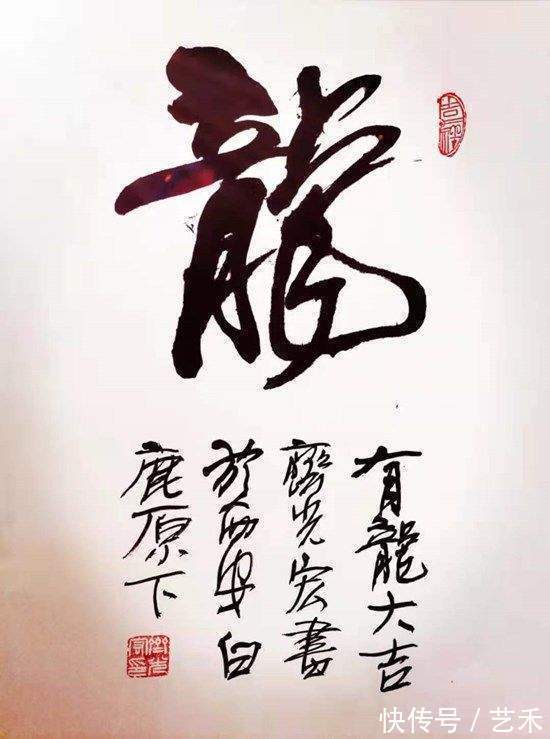 龍
吉祥
有龍大吉
光宏書
於西安白
鹿原下
快传号／艺禾